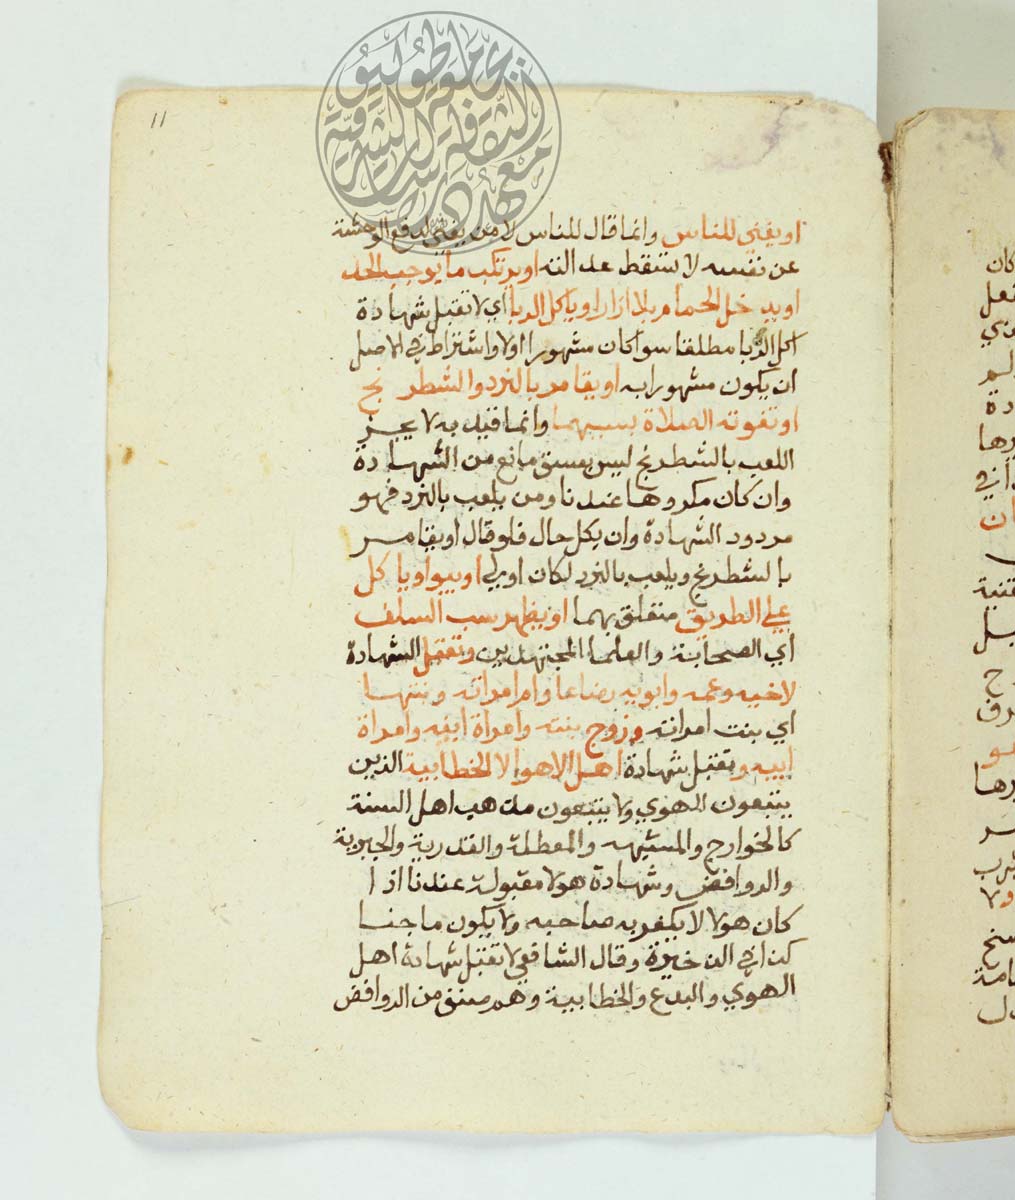 ١١
او يغني للناس وانما قال للناس لان من يغني لدفع الوحشة
عن نفسه لا تسقط عدالته او يرتكب ما يوجب الحد
او يدخل الحمام بلا ازار او ياكل الربا اي لا تقبل شهادة
اكل الربا مطلقا سوا كان مشهورا اولا واشتراط في الاصل
ان يكون مشهورا به او يقامر بالنرد والشطرنج
او تفوته الصلاة بسببهما وانما قيد به لا يجر
اللعب بالشطرنج ليس بفسق مانع من الشهادة
وان كان مكروها عندنا ومن يلعب بالنرد فهو
مردود الشهادة وان بكل حال فلو قال او يقامر
بالشطرنج ويلعب بالنرد لكان اولي او يبول او ياكل
علي الطريق متعلق بهما او يظهر سب السلف
اي الصحابة والعلما المجتهدين وتقبل الشهادة
لاخيه وعمه وابويه رضاعا وام امراته وبنتها
اي بنت امراته وزوج بنته وامراة ابنه وامراة
ابيه وتقبل شهادة اهل الاهوا الا الخطابية الذين
يتبعون الهوي ولا يتبعون مذهب اهل السنة
كالخوارج والمشبهه والمعطلة والقدرية والجبرية
والروافض وشهادة هولا مقبولة عندنا اذا
كان هولا لا يكفر به صاحبه ولا يكون ماجنا
كذا في الذخيرة وقال الشافعي لا تقبل شهادة اهل
الهوي والبدع والخطابية وهم صنف من الروافض